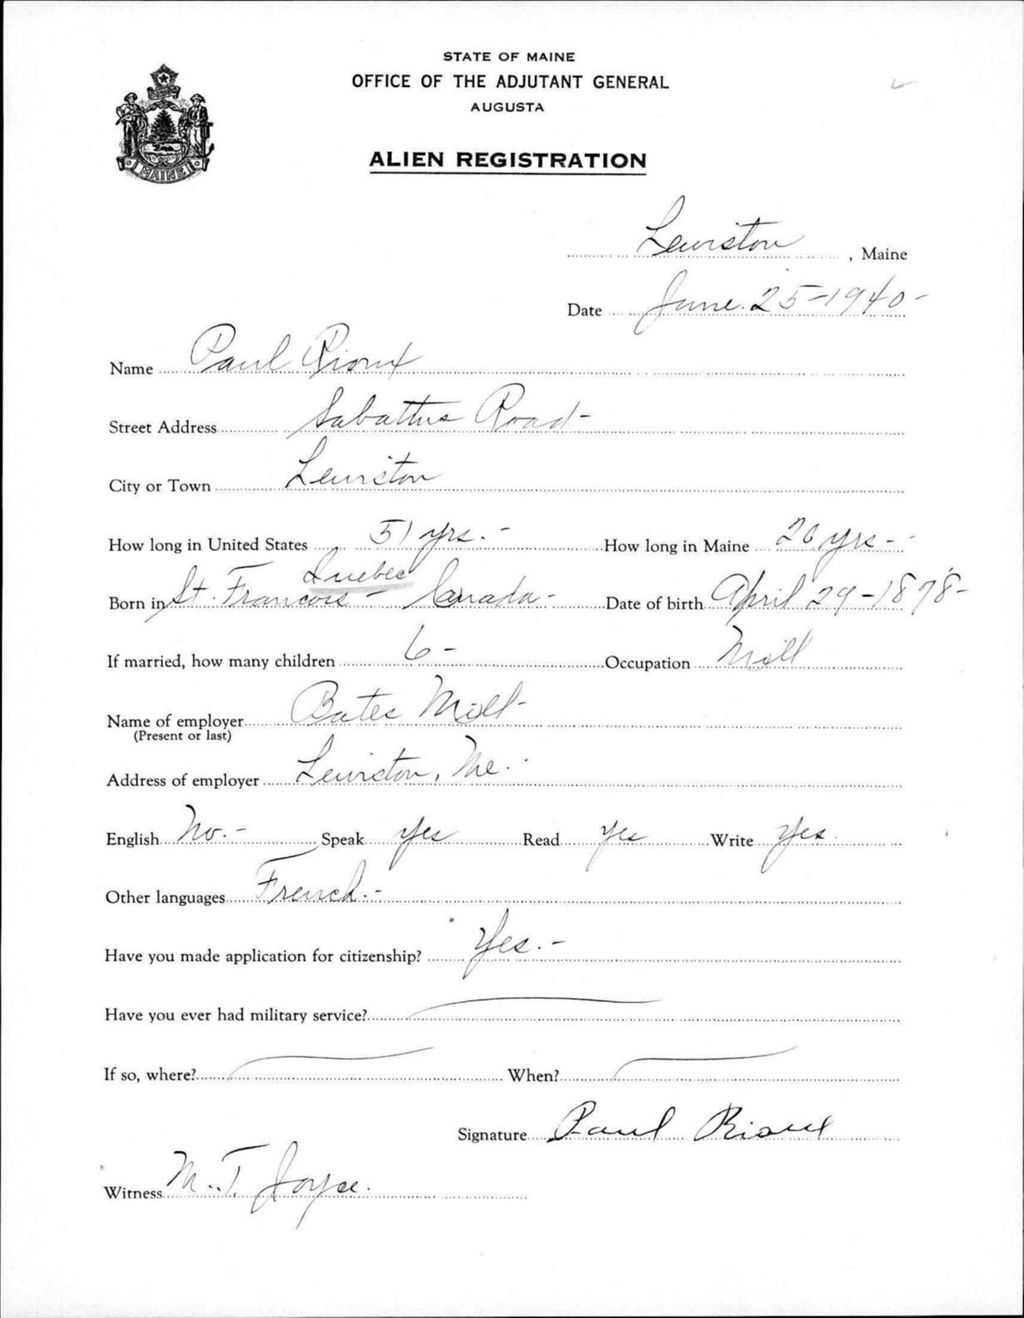 STATE OF MAINE
OFFICE OF THE ADJUTANT GENERAL
AUGUSTA
ALIEN REGISTRATION
MAINE
Lewiston, Maine
Date June 25-1940-
Name Paul Rioux
Street Address Sabattus Road-
City or Town Lewiston
How long in United States 51 yrs.- How long in Maine 20 yrs-
Quebec
Born in St. Francois- Canada- Date of birth April 29-1878-
If married, how many children 6- Occupation Mill
Name of employer Bates Mill-
(Present or last)
Address of employer Lewiston, Me.
English No.- Speak yes Read yes Write yes
Other languages French.-
Have you made application for citizenship? Yes.-
Have you ever had military service?
If so, where? When?
Signature Paul Rioux
Witness M.T. Joyce.